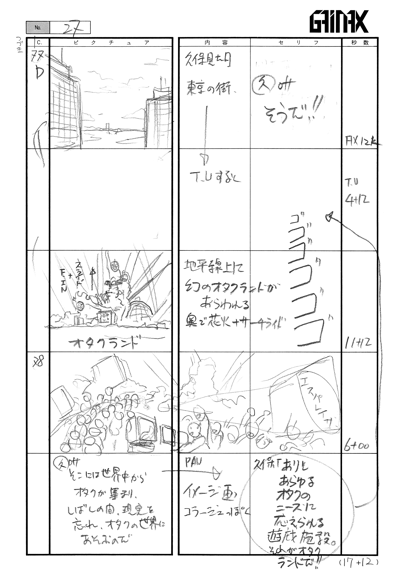 GAINAX
No. 27
C. ピクチュア 内容 セリフ 秒数
D
久保見た目
東京の街.
久 off
そうだ!!
T.Uすると
T.U
4+12
ゴゴゴゴゴゴ
地平線上に
幻のオタクランドが
あらわれる
奥で花火+サーチライト
オタクランド
11+12
6+00
久 off
そこには世界中から
オタクが集まり、
しばしの間、現実を
忘れ、オタクの世界に
あそぶのだ
PAN
イメージ画
コラージュっぽく
「ありと
あらゆる
オタクの
ニーズに
応えられる
遊戯施設。
それがオタク
ランドだ!!
(17+12)